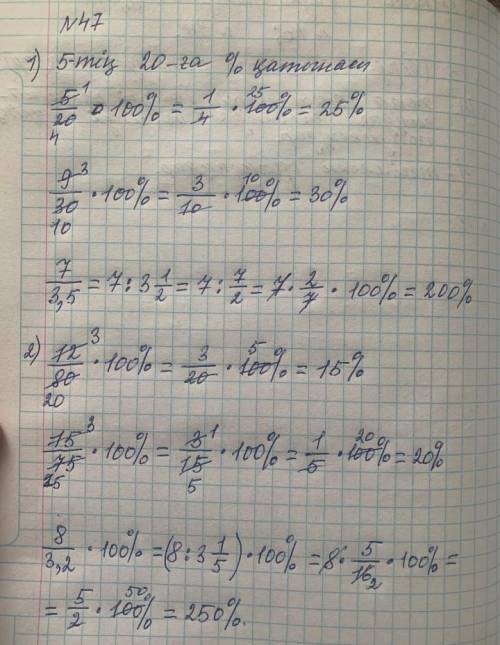 №47
1) 5-тің 20-ға % қатынасы
5/20 · 100% = 1/4 · 100% = 25%
9/30 · 100% = 3/10 · 100% = 30%
7/3,5 = 7 : 3 1/2 = 7 : 7/2 = 7 · 2/7 · 100% = 200%
2) 12/80 · 100% = 3/20 · 100% = 15%
15/75 · 100% = 3/15 · 100% = 1/5 · 100% = 20%
8/3,2 · 100% = (8 : 3 1/5) · 100% = 8 · 5/16 · 100% =
= 5/2 · 100% = 250%.